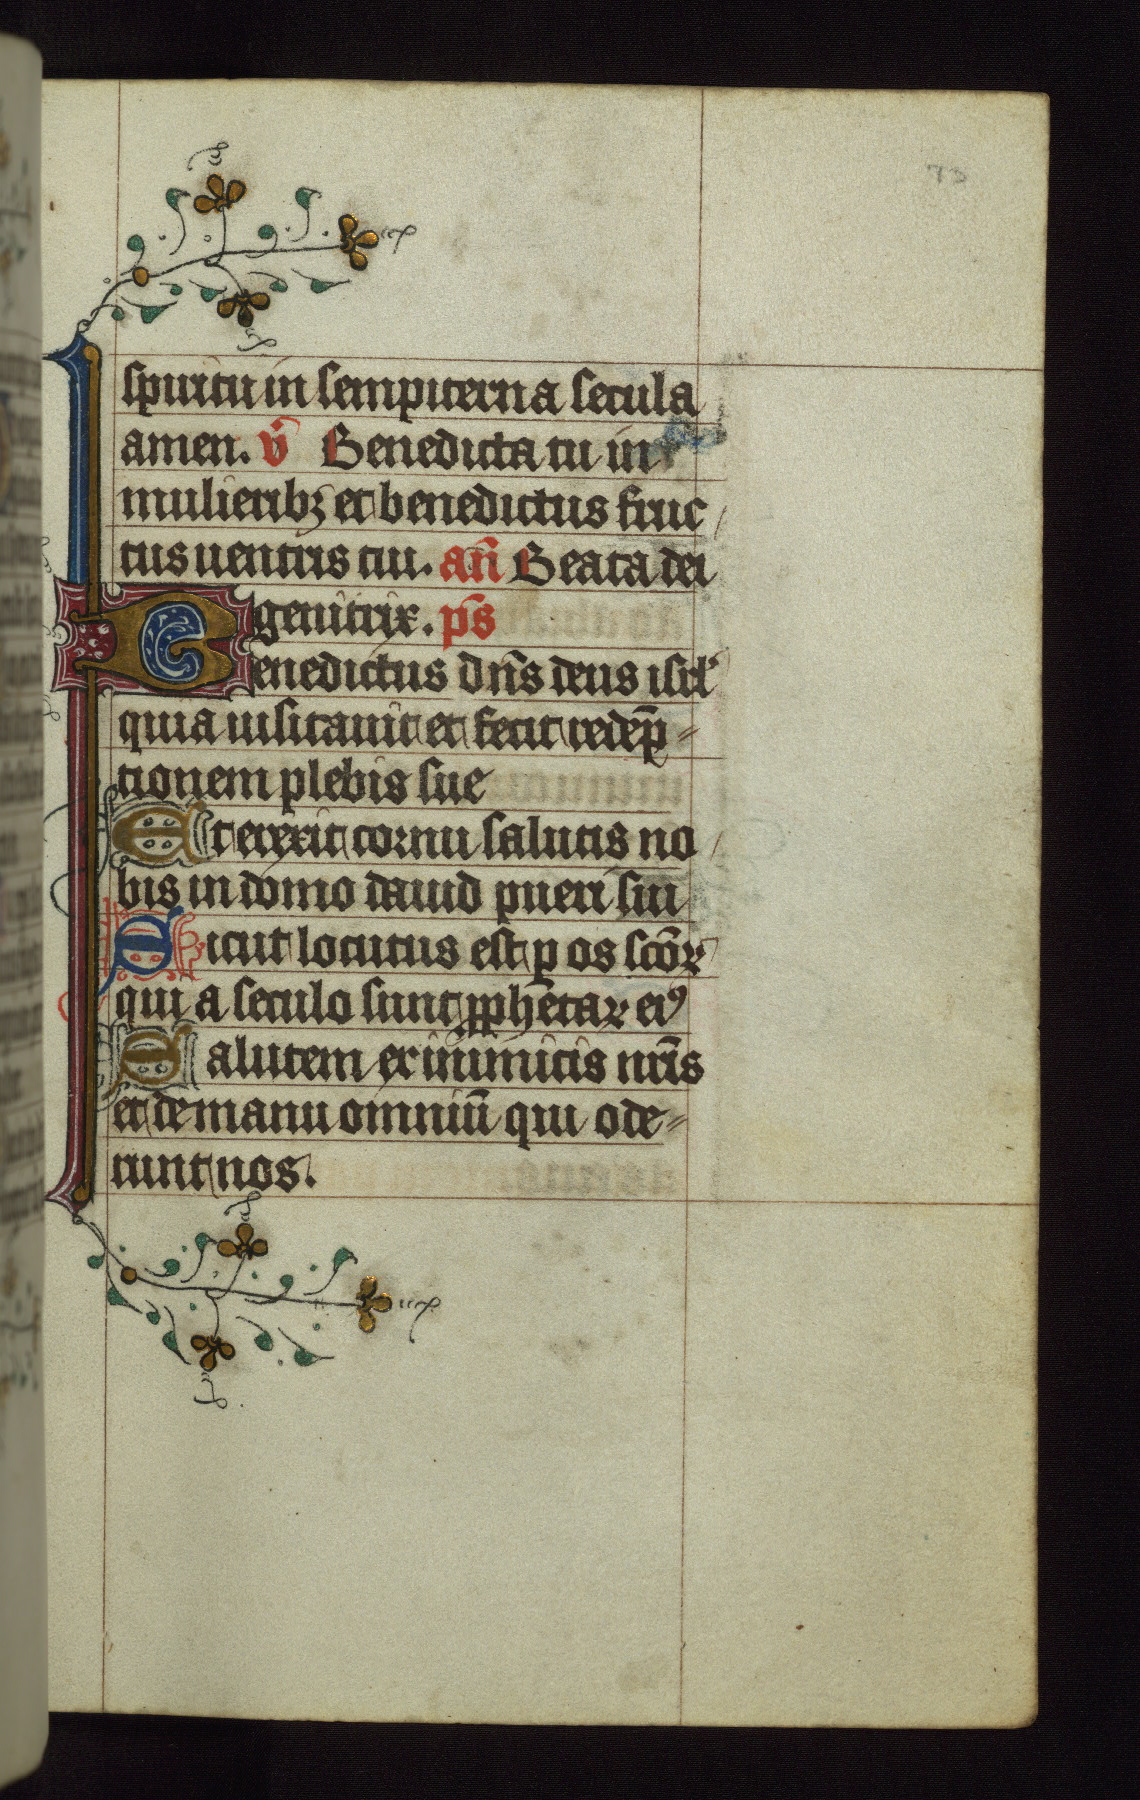 spiritu in sempiterna secula
amen. v̄ Benedicta tu in
mulieribꝫ et benedictus fruc
tus uentris tui. an̄ Beata dei
genitrix. p̄s
Benedictus dn̄s deus isrl'
quia uisitauit et fecit redēp
tionem plebis sue
Et erexit cornu salutis no
bis in domo dauid pueri sui
Sicut locutus est ꝑ os scōꝝ
qui a seculo sunt ꝓph̄etaꝝ eiꝰ
Salutem ex inimicis nr̄is
et de manu omniū qui ode
runt nos.